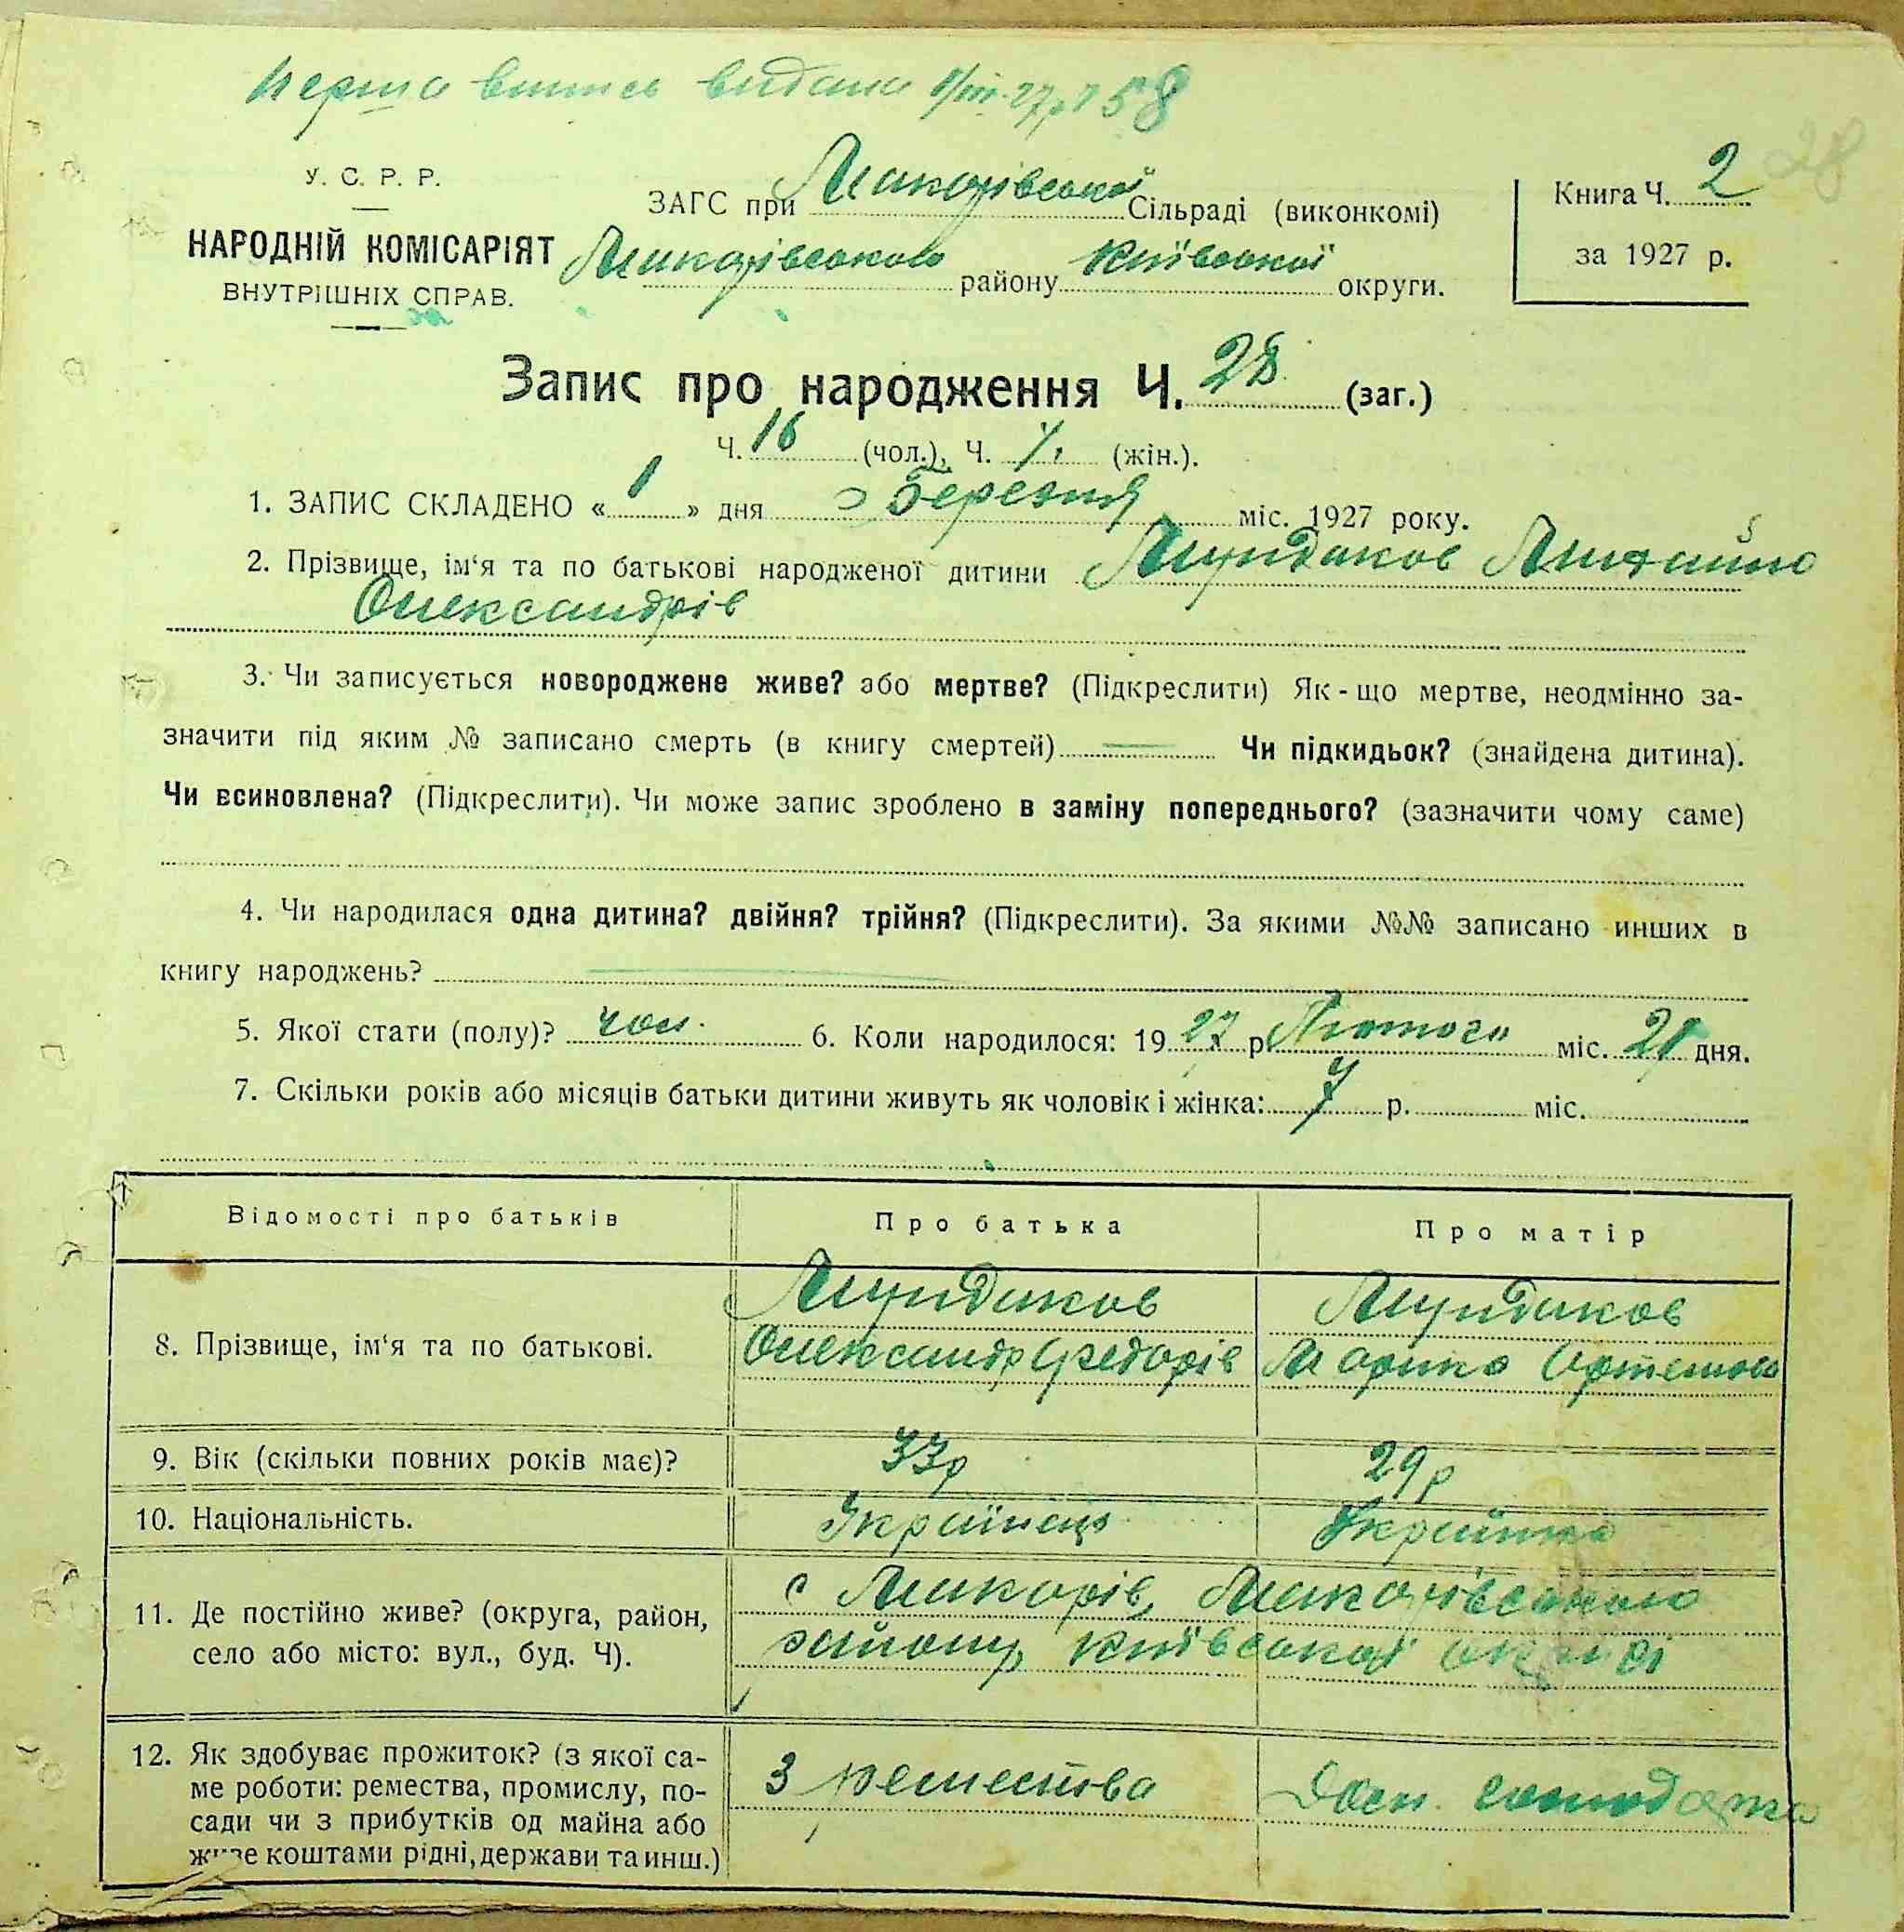 Перша випись видана 8/III-27р. 58
28
У. С. Р. Р.
НАРОДНІЙ КОМІСАРІЯТ
ВНУТРІШНІХ СПРАВ.
ЗАГС при Макарівської Сільраді (виконкомі)
Макарівського району Київської округи.
Книга Ч. 2
за 1927 р.
Запис про народження Ч. 28 (заг.)
Ч. 16 (чол.), Ч. (жін.).
1. ЗАПИС СКЛАДЕНО « 1 » дня Березня міс. 1927 року.
2. Прізвище, ім‘я та по батькові народженої дитини
Олександрів
3. Чи записується новороджене живе? або мертве? (Підкреслити) Як-що мертве, неодмінно за-
значити під яким № записано смерть (в книгу смертей) — Чи підкидьок? (знайдена дитина).
Чи всиновлена? (Підкреслити). Чи може запис зроблено в заміну попереднього? (зазначити чому саме)
4. Чи народилася одна дитина? двійня? трійня? (Підкреслити). За якими №№ записано инших в
книгу народжень? —
5. Якої стати (полу)? чол. 6. Коли народилося: 19 27 р. Лютого міс. дня.
7. Скільки років або місяців батьки дитини живуть як чоловік і жінка: 7 р. міс.
Відомості про батьків Про батька Про матір
8. Прізвище, ім‘я та по батькові.
Олександр Федорів Марина Артемова
9. Вік (скільки повних років має)? 33р 29р
10. Національність. Українець Українка
11. Де постійно живе? (округа, район,
село або місто: вул., буд. Ч).
с Макарів, Макарівського
району, Київської округи
12. Як здобуває прожиток? (з якої са-
ме роботи: ремества, промислу, по-
сади чи з прибутків од майна або
живе коштами рідні, держави та инш.)
З ремества